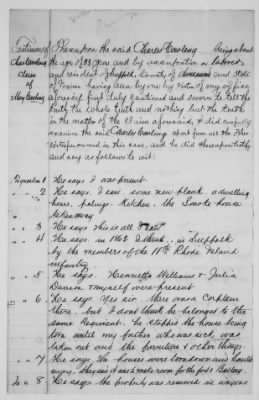 Testimony of
Chas Cowling
Claim
of
Mary Cowling
Whereupon the said Charles Cowling being about
the age of 33 years and by occupation a laborer
and resident of Suffolk, County of Nansemond and State
of Virginia having been by me by virtue of my office
aforesaid first duly cautioned and sworn to tell all the
truth the whole truth and nothing but the truth
in the matter of the claim aforesaid, I did carefully
examine the said Charles Cowling apart from all the other
Witnesses named in this case, and he did thereupon testify
and say as follows to wit:
1 He says I was present
" " 2 He says. I saw some new plank. a dwelling
house, palings. Kitchen. the Smoke house
taken away
" " 3 He says this is all I saw
" " 4 He says in 186 I think. in Suffolk
by the members of the 11th Rhode Island
Infantry
" " 5 He says. Henrietta Williams & Julia
& myself were present
" " 6. He says Yes sir. there was a Captain
there. but I dont think he belonged to the
same Regiment. he stopped the house being
torn until my father who was sick was
taken out and the furniture & other things.
" " 7 He says the houses were torn down and
away. they said it was to make room for the fort Battery.
" " 8 He says the property was removed in wagons